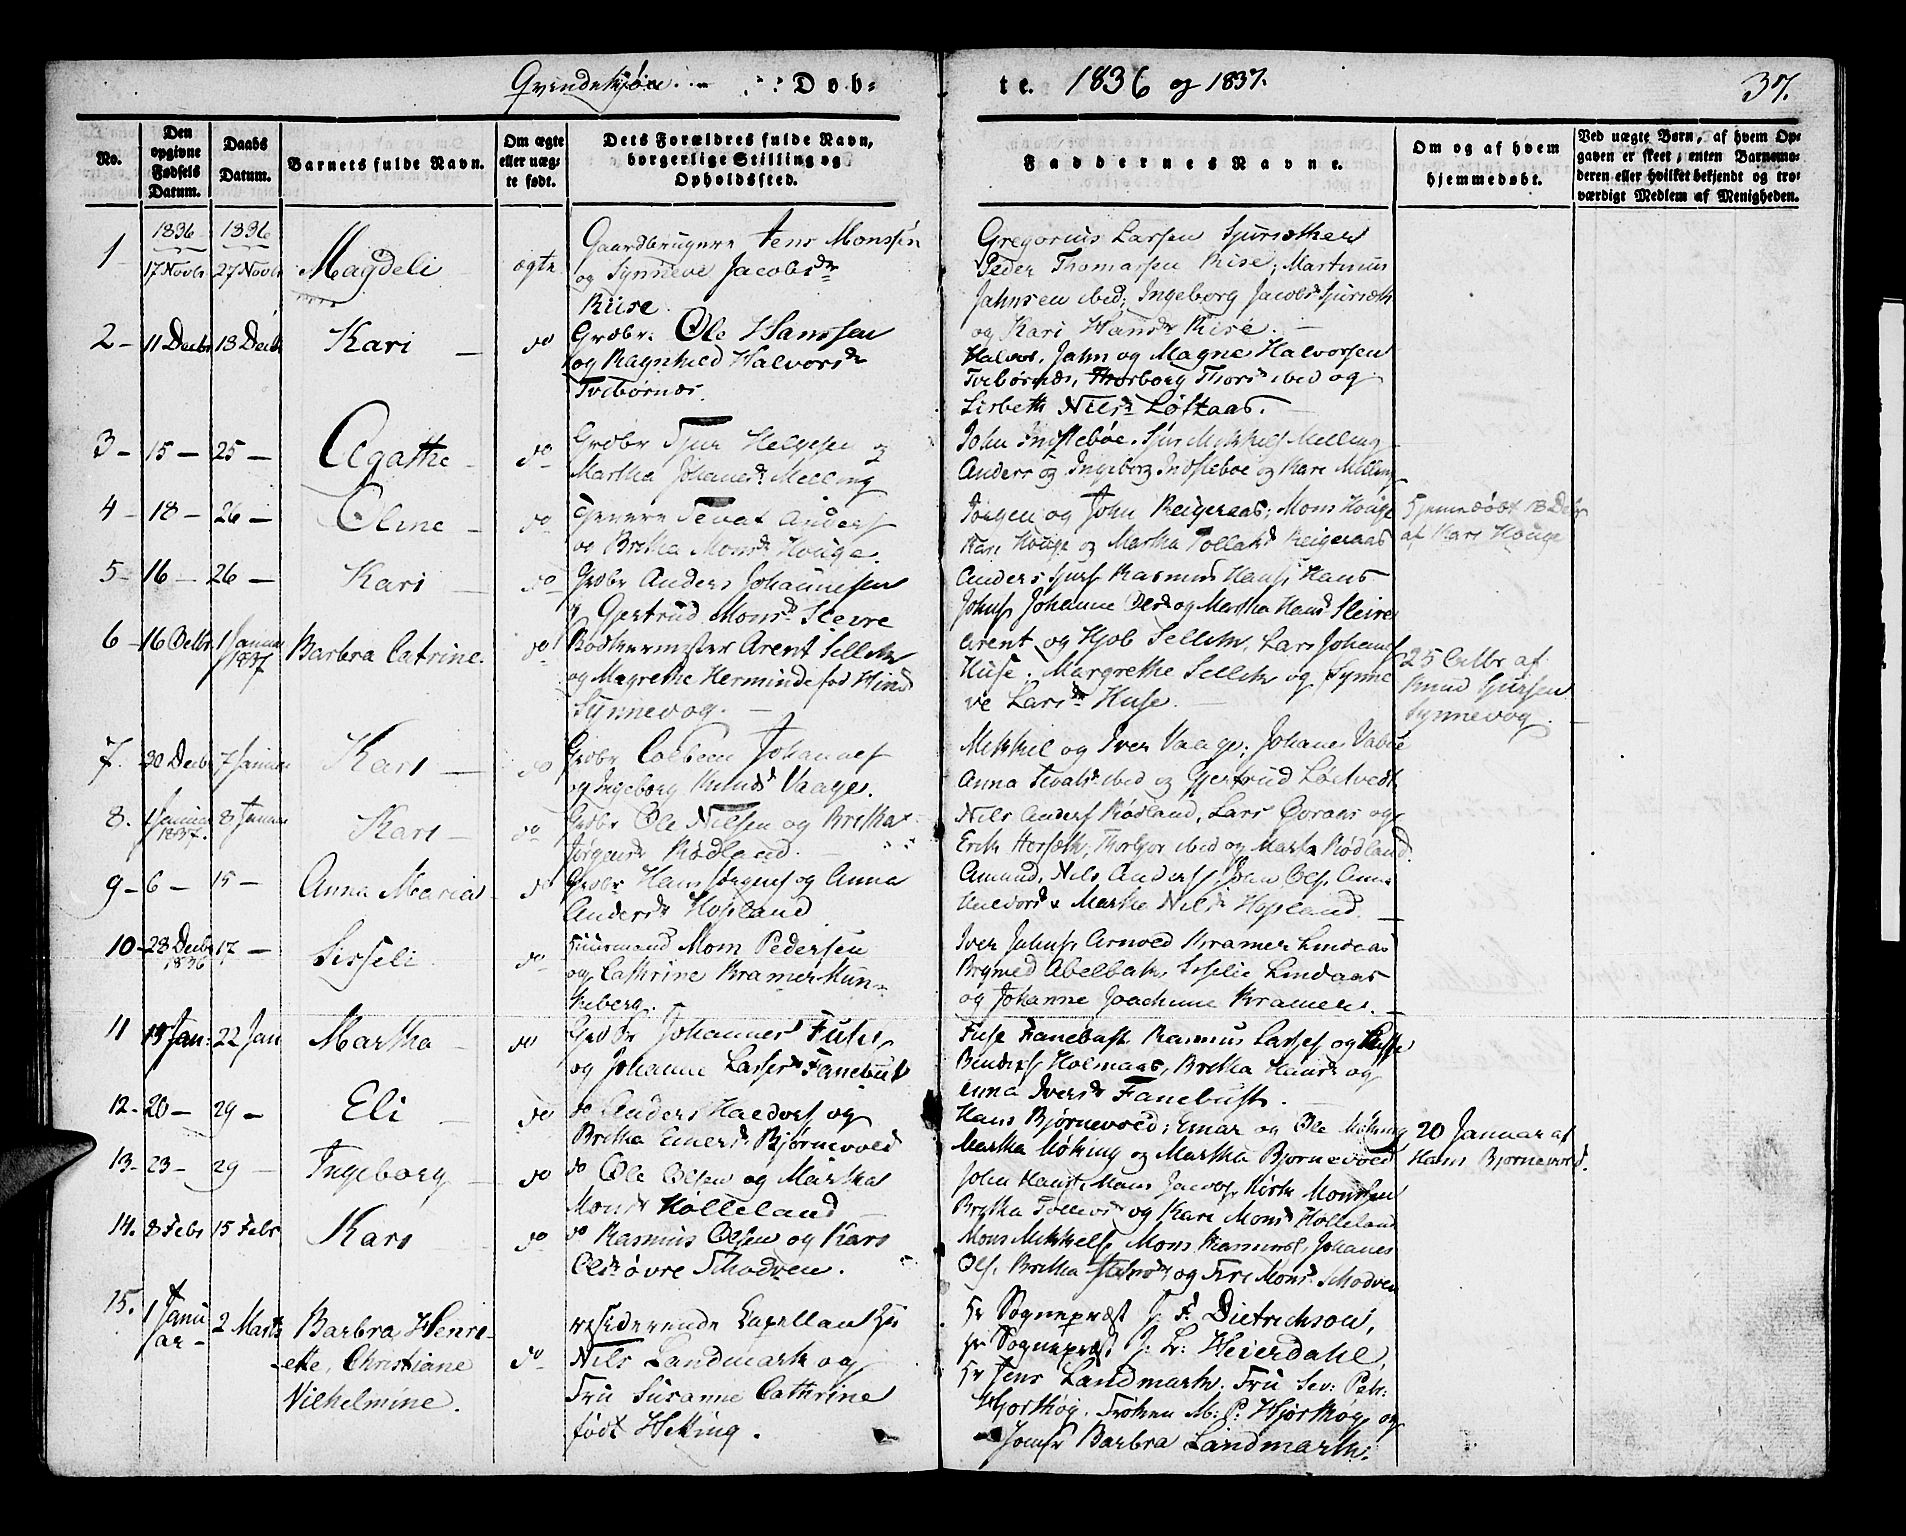 Qvindekjøn. Døb-
te. 1836 og 1837.
37.
No.
Den opgivne Fødsels Datum.
Daabs Datum.
Barnets fulde Navn.
Om ægte eller uægte født.
Dets Forældres fulde Navn, borgerlige Stilling og Opholdssted.
Faddernes Navne.
Om og af hvem hjemmedøbt.
Ved uægte Børn, af hvem Opgaven er skeet, enten Barnemoderen eller hvilket bekjendt og troværdigt Medlem af Menigheden.
1836 1836
1 17 Novbr 27 Novbr Magdeli ægte
Gaardbrugere Jens Monssen
og Synneve Jacobsdr
Riise.
Gregorius Larsen Sjursæther
Peder Thomassen Riise, Martinus
Jahnsen ibid; Ingeborg Jacobsd Sjursæth
og Kari Hansdr Rise.
2 - 11 Decbr 13 Decbr Kari do
Grdbr: Ole Hanssen
og Ragnhild Halvorsdr
Tvibørnæs.
Halvor, John og Magne Halvorsen
Tvibørnæs, Thorborg Thorsd ibid og
Lisbeth Nilsd Løktaas.
3 - 15 - 25 - Agathe do
Grdbr Sjur Helgesen og
Martha Johansd. Melling
John Indstebøe. Sjur Mikkels Melling
Anders og Ingeborg Indstebøe og Kari Melling
4 - 18 - 26 - Oline do
Tevat Anders
og Britha Monsdr Houge.
Jørgen og John Reigeraas; Mons Houge
Kari Houge og Martha Reigeraas
Hjemmedøbt 18 Dcbr
af Kari Houge
5 - 16 - 26 - Kari do
Grdbr Anders Johannesen
& Gjertrud Monsd. Sleire
Anders Sjurs. Rasmus Hans. Hans
Johns. Johanne Olsd og Martha Hansd Sleire
6 - 16 Decbr. 1 Januar 1837 Barbra Catrine. do
Arent Sellem
og Magrethe Herminde fød Hind
Synnevog.
Arent og Hjob Sellem, Lars Johans
Huse. Margrethe Sellem og Synne
ve Larsdr Huse.
25 Decbr. af
Knud Sjursen
Synnevog.
7. 30 Decbr 7 Januar Kari do
Grdbr Colbein Johannes
og Ingeborg Knudsd Vaage.
Mikkel og Iver Vaage; Johanes Vabøe
Anna Tevatsd. ibid og Gjertrud Lødtvedt
8. 1 Januar 1837. 8 Januar Kari do
Grdbr Ole Nilsen og Britha
Jørgensd Rødland.
Nils Anders Rødland, Lars Qvraas og
Erik Hersæth, Thorbjor ibid og Martha Rødland.
9 - 6 - 15 - Anna Maria do
Grdbr Hans Jørgens og Anna
Andersdr Hopland
Amund, Nils Anders Ols. Anna
Halvorsd & Martha Nilsd Hopland.
10 - 23 Decbr 1836 17 - Sisseli do
Huusmand Mons Pedersen
og Cathrine Kramer Mun-
keberg.
Iver Johns. Arnold Kramer Lindaas
Brynild Abelbak, Sisselie Lindaas
og Johanne Joachime Kramer.
11 15 Jan: 22 Jan Martha do
Grdbr Johannes Fuses
og Johanne Lassesd Fanebust
Fuse Fanebust. Rasmus Lasses og
Holmaas, Britha Hansd og
Anna Iversdr Fanebust.
12. 20 - 29 - Eli do
do Anders Haldors og
Britha Emersd. Bjørnevold
Hans Bjørnevold; Emar og Ole Møking
Martha Møking og Martha Bjørnevold
20 Januar af
Hans Bjørnevold.
13. 23 - 29 - Ingeborg do
do Ole Olsen og Martha
Monsd Hølleland
John Hans. Hans Jacobs. Monssen
Britha og Kari Monsd Hølleland
14. 8 Febr 15 Febr Kari do
do Rasmus Olsen og Kari
Olsdr øvre Schodven.
Mons Mikkels. Mons Rasmuss. Johanes
Ols. Britha og Siri Monsd. Schodven
15. 1 Janu
ar - 2 Marts Barbra Henri-
ette, Christiane
Vilhelmine. do
residerende Capellan Hr
Nils Landmark og
Fru Susanne Cathrine
født Helting.
Hr Sognepræst J. F. Dietrichson,
Hr Sognepræst J. L: Heierdahl,
Hr Jens Landmark. Fru Sev: Petr:
Hjorthøg. Frøken M: P: Hjorthøg, og
Jomfr Barbra Landmark.